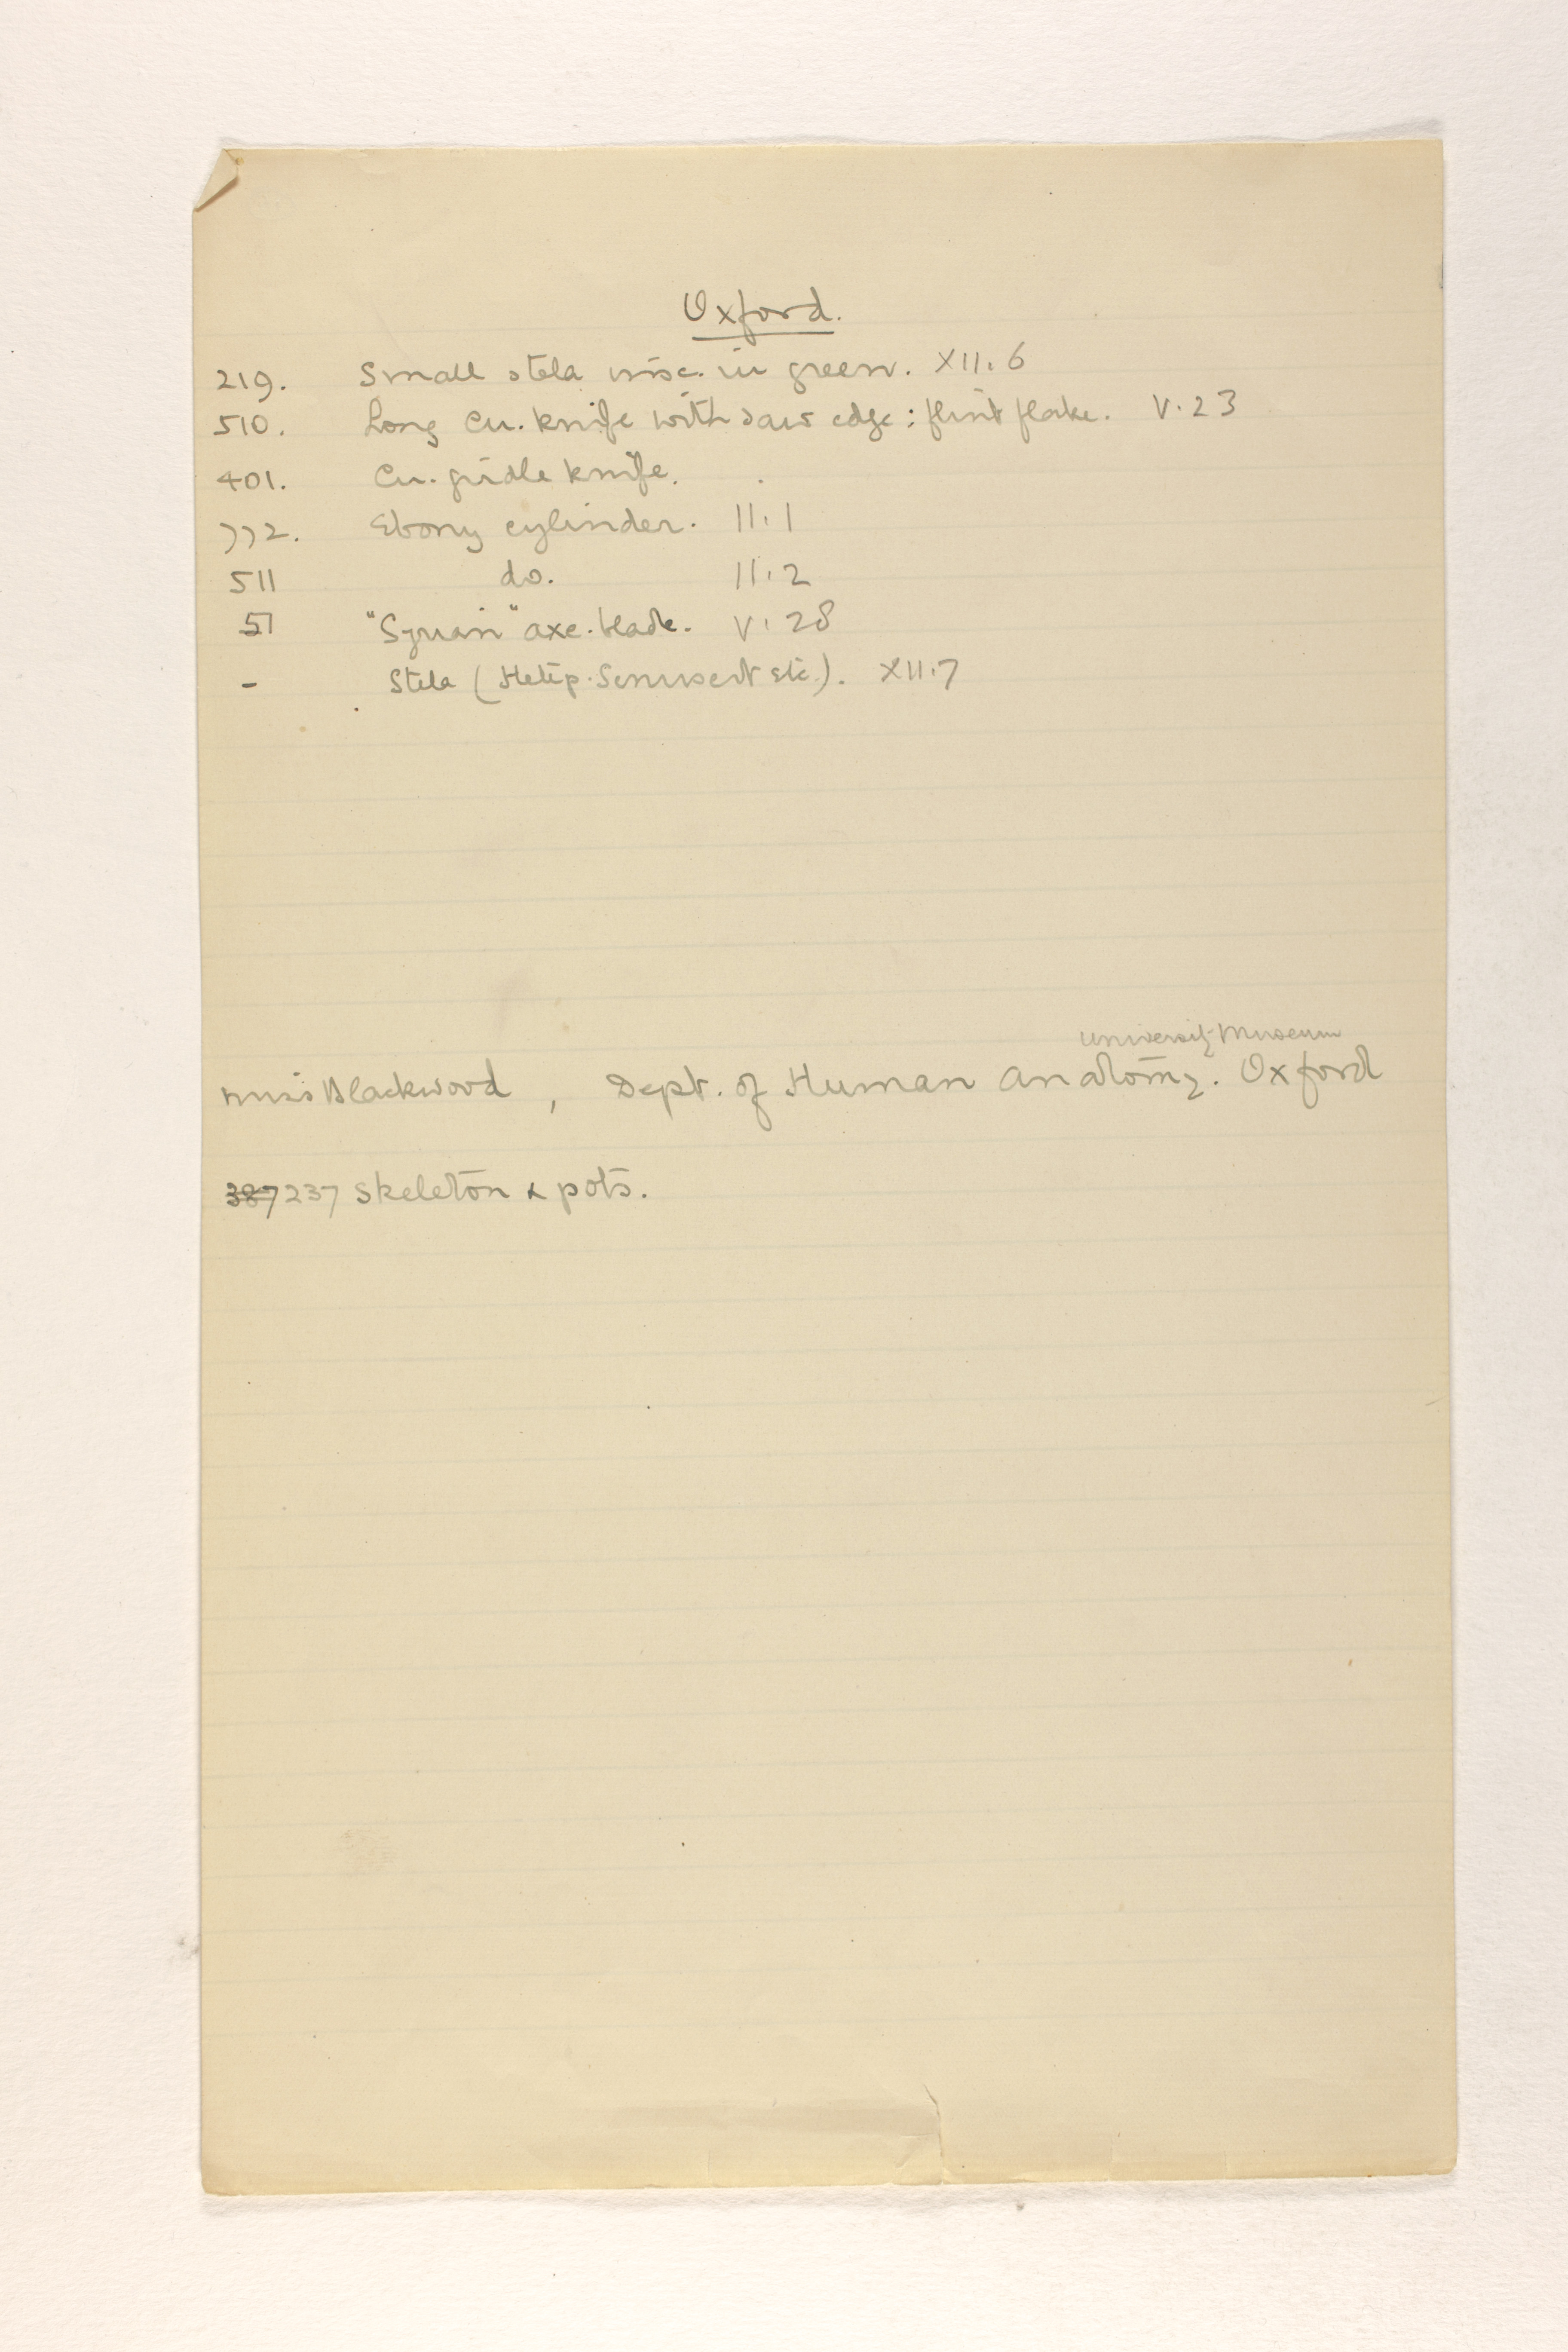 Oxford.
219. Small stela insc. in green. XII. 6
510. Long Cu. knife with saw edge : flint flake. V. 23
401. Cu. girdle knife.
772. Ebony cylinder. II. 1
511 do. II. 2
51 "Syrian" axe. blade. V. 28
- Stela (Hetep. Senusert etc.). XII. 7
University Museum
Miss Blackwood, Dept. of Human Anatomy. Oxford
387 237 Skeleton & pots.